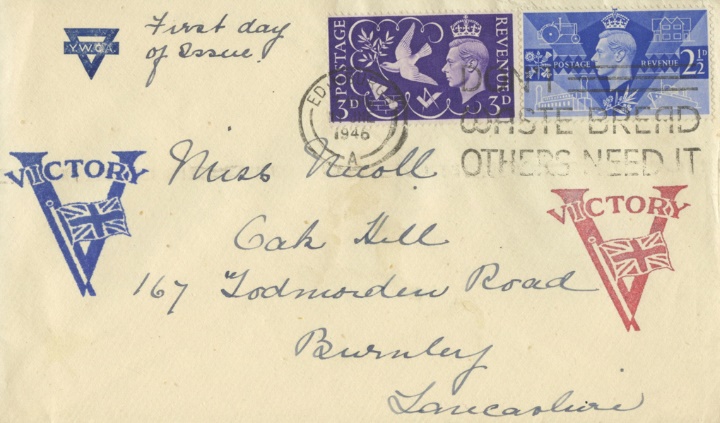 First day
of Issue.
Y.W.C.A.
POSTAGE
REVENUE
3D
3D
POSTAGE
REVENUE
2½D
1946
A
DON'T
WASTE BREAD
OTHERS NEED IT
VICTORY
VICTORY
Miss Nicoll
Oak Hill
167 Todmorden Road
Burnley
Lancashire